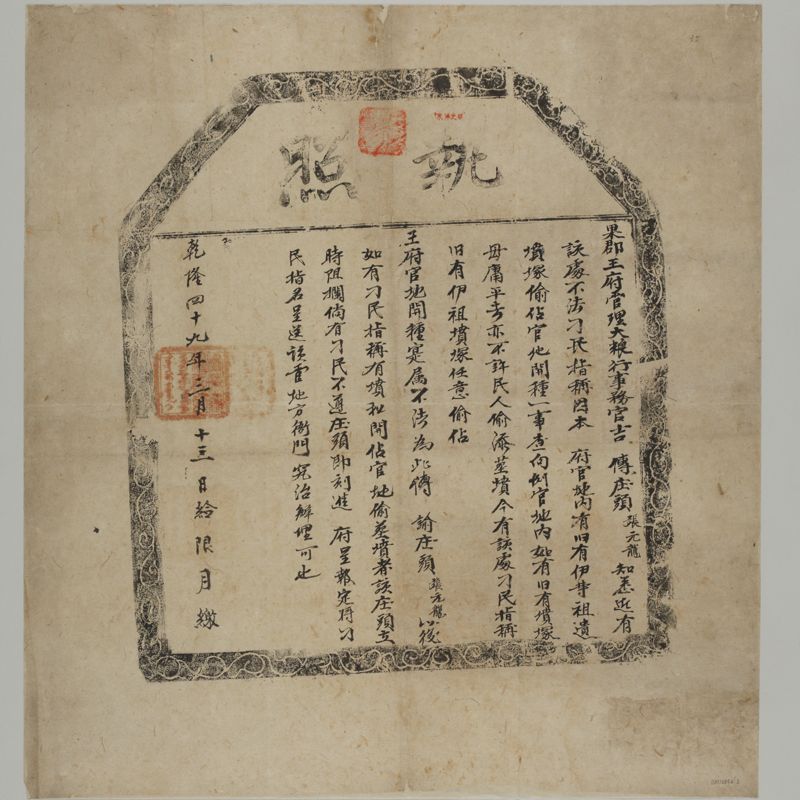 執照
果郡王府官理大粮行事務官吉　傳庄頭張元龍知悉近有
該處不法刁民指稱因本　府官地內有旧有伊等祖遺
墳塚偷佔官地開種一事查向例官地內如有旧有墳塚
毋庸平去亦不許民人偷添塟墳今有該處刁民指稱
旧有伊祖墳塚任意偷佔
王府官地開種寔属不法為此傳　諭庄頭張元龍以後
如有刁民指稱有墳私開佔官地偷塟墳者該庄頭立
時阻攔倘有刁民不遵庄頭即刻進　府呈報定將刁
民指名呈送該管地方衙門究治辦理可也
乾隆四十九年三月十三日給限月繳